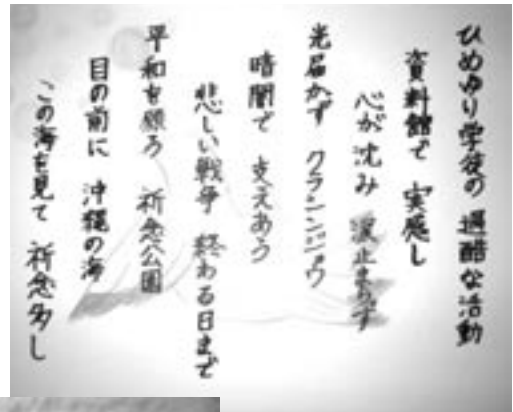 ひめゆり学徒の 過酷な活動
資料館で 実感し
心が沈み 涙止まらず
光届かず クランジョウ
暗闇で 支えあう
悲しい戦争 終わる日まで
平和を願う 祈念公園
目の前に 沖縄の海
この海を見て 祈念多し